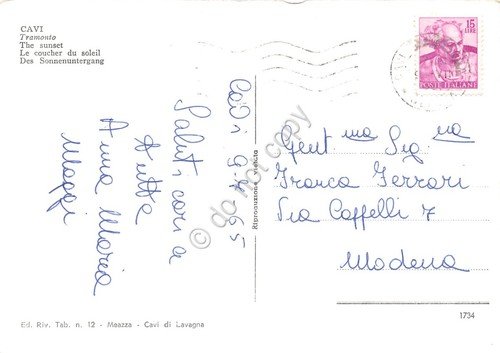 CAVI
Tramonto
The sunset
Le coucher du soleil
Des Sonnenuntergang
15
LIRE
POSTE ITALIANE
Cavi 9-4-65
Saluti cari a
tutte
Anna Maria
Maggi
Riproduzione vietata
Gent ma Sig na
Franca Ferrari
Via Cappelli 7
Modena
© do not copy
Ed. Riv. Tab. n. 12 - Meazza - Cavi di Lavagna
1734